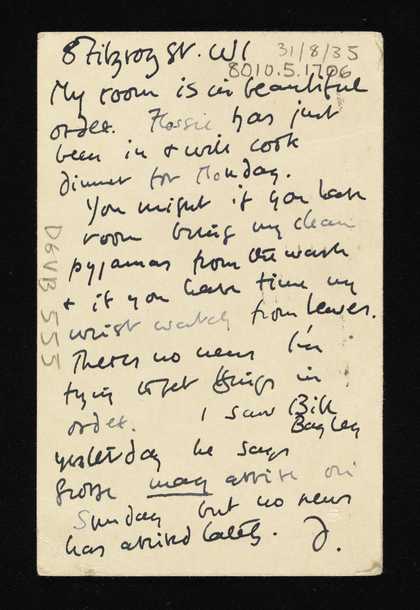 8 Fitzroy St. W1
31/8/35
8010.5.1706
My room is in beautiful
order. Flossie has just
been in & will cook
dinner for Monday.
You might if you have
room bring my clean
pyjamas from the wash
& if you have time my
wrist watch from Lewes.
Theres no news I'm
trying to get things in
order. I saw Bill
Bagley
yesterday he says
George may arrive on
Sunday but no news
has arrived lately. D.
D6VB 555